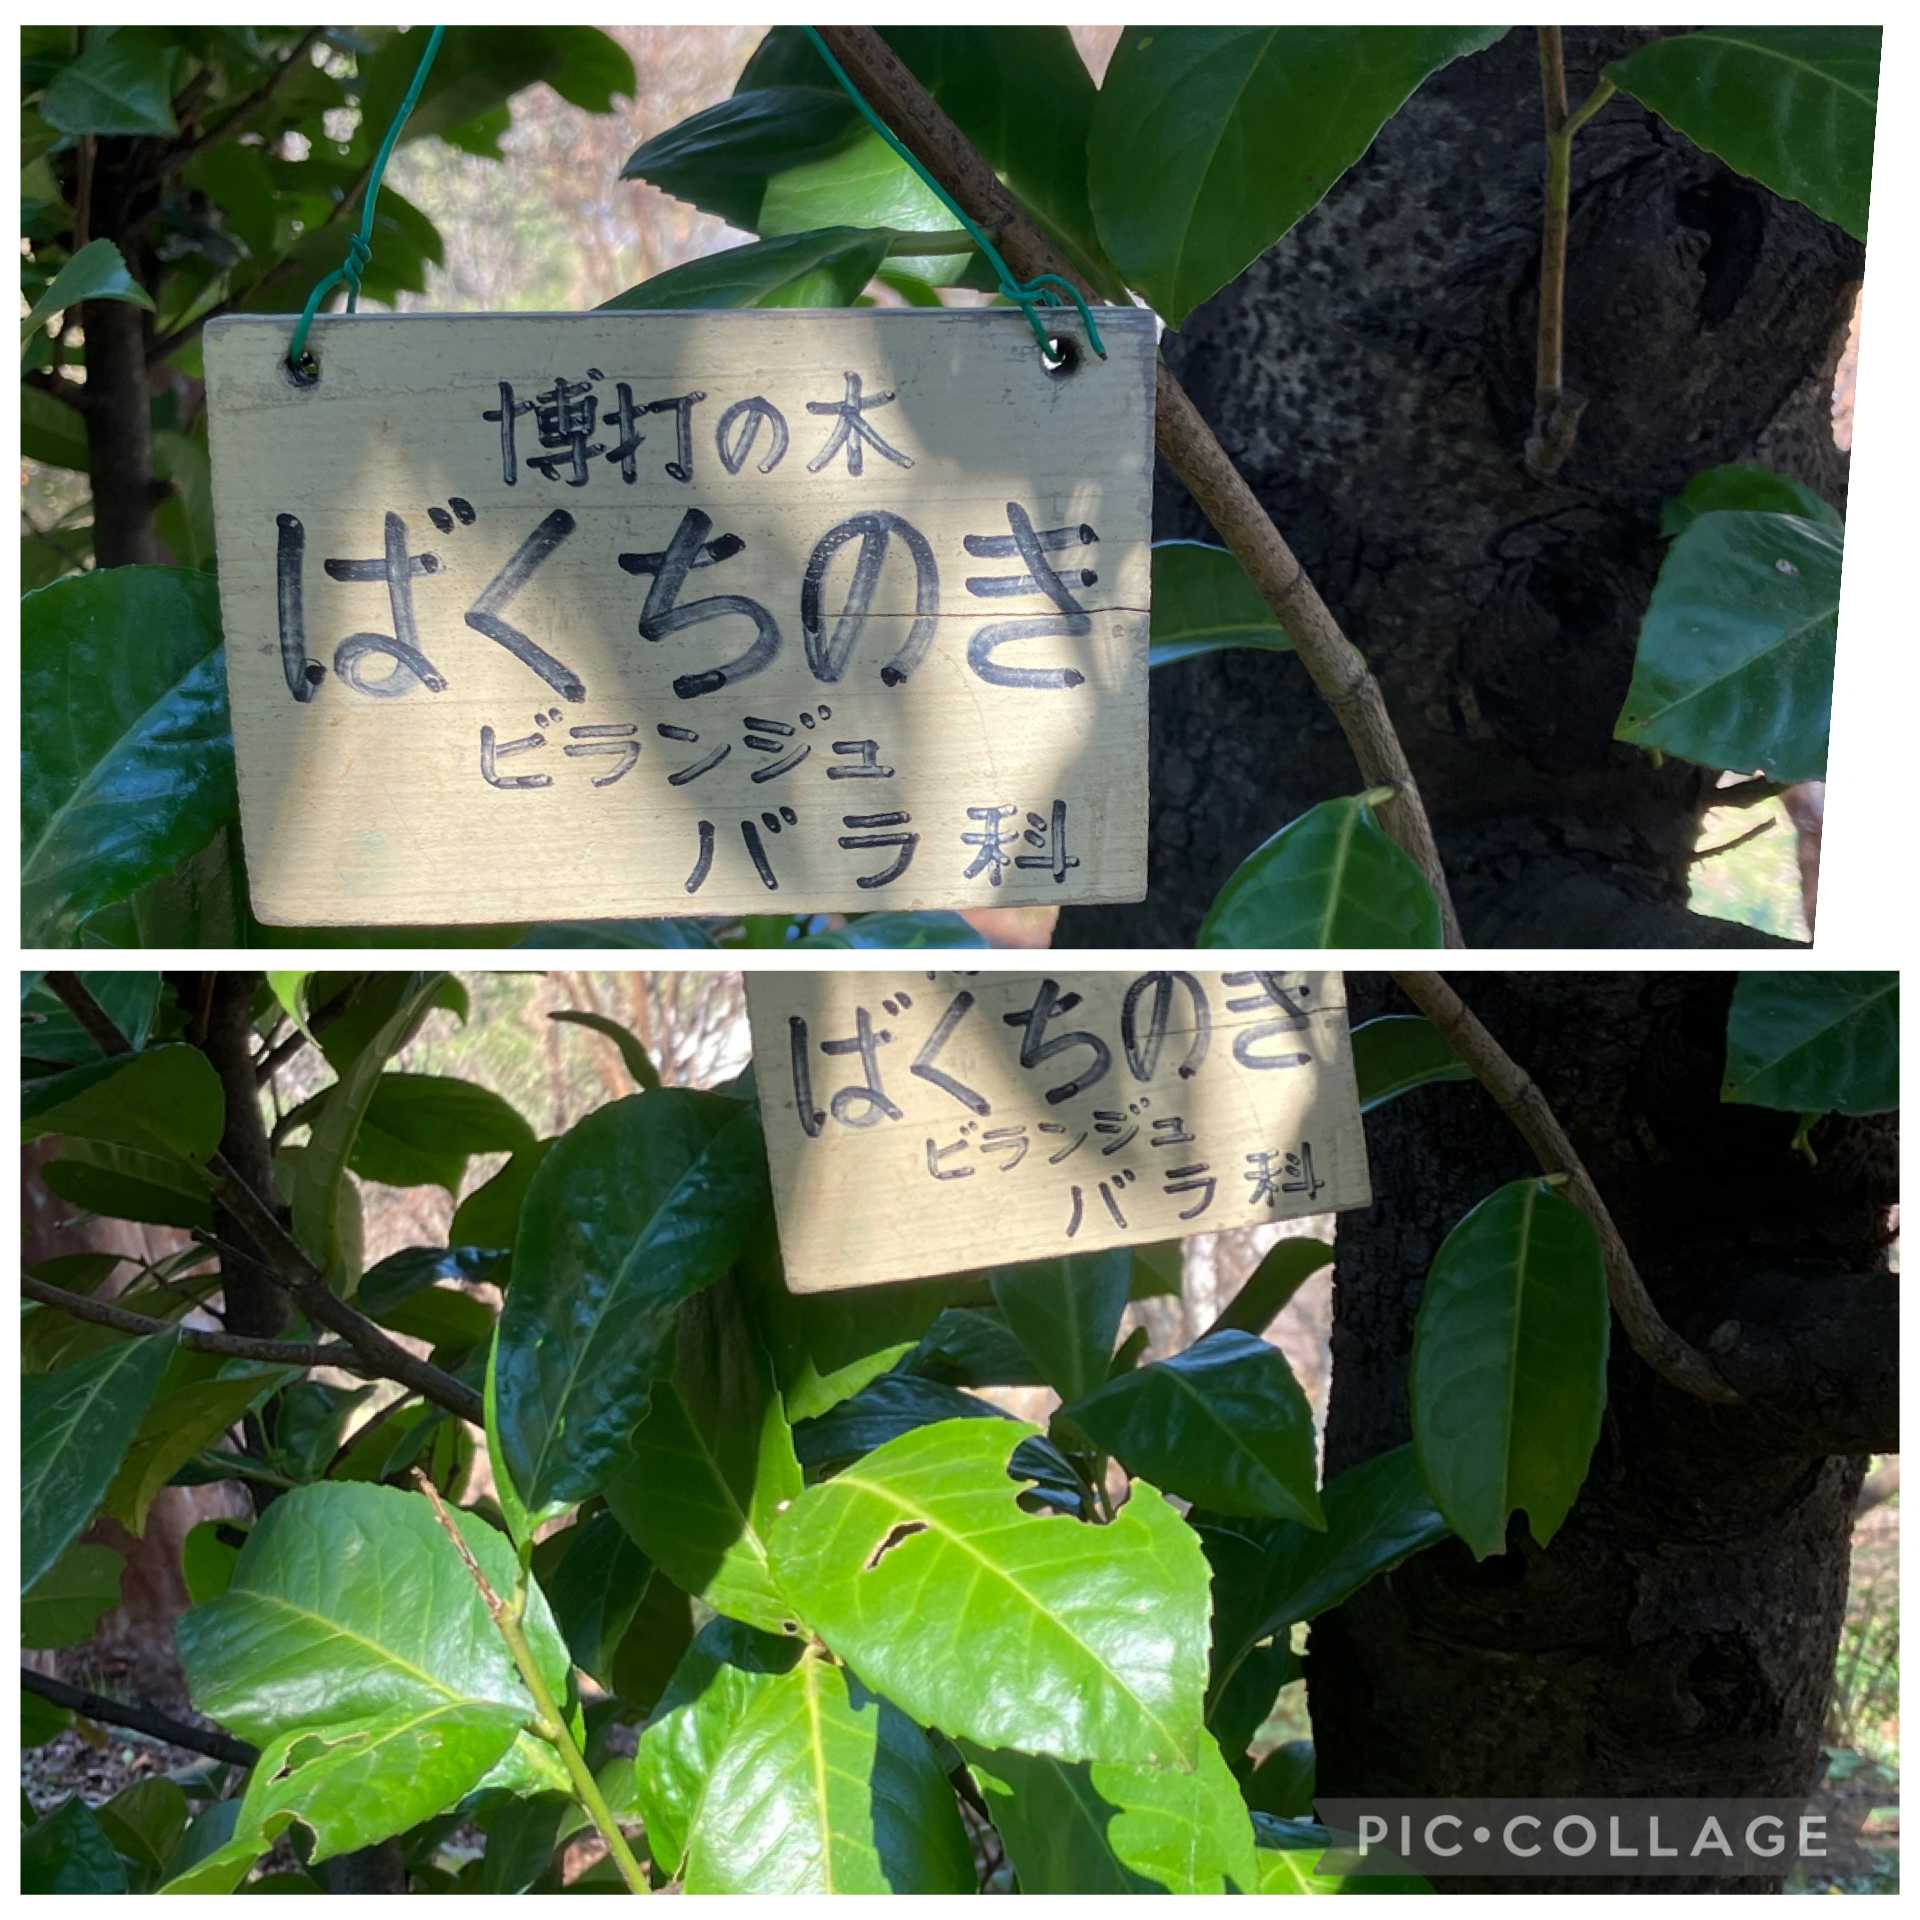 博打の木
ばくちのき
ビランジュ
バラ科
ばくちのき
ビランジュ
バラ科
PIC•COLLAGE